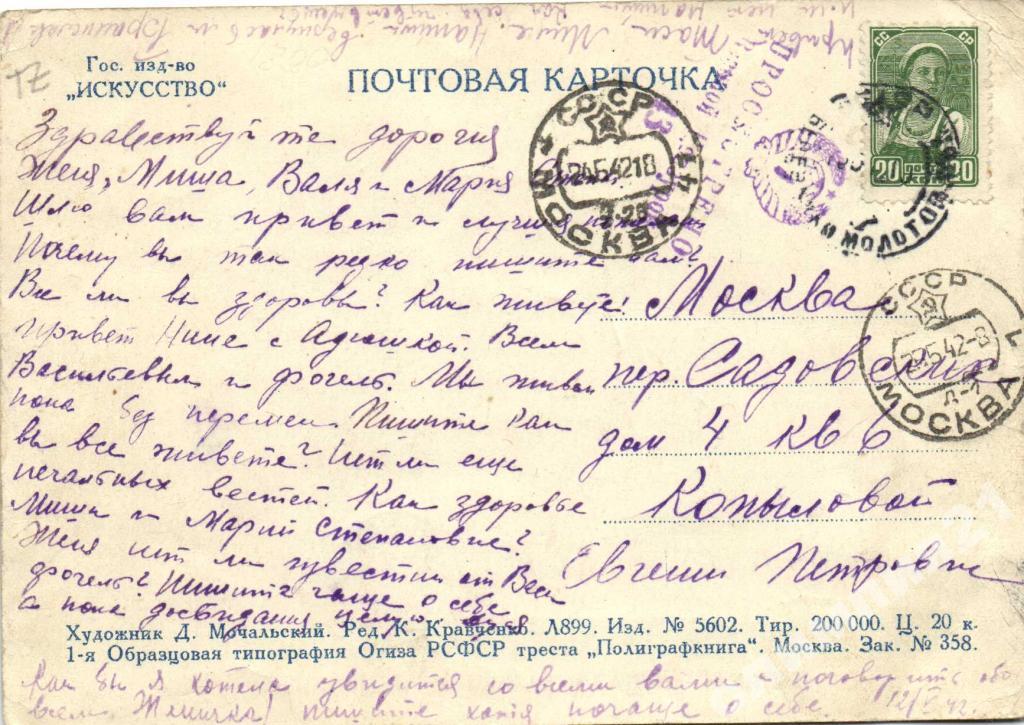 Гос. изд-во
„ИСКУССТВО“
ПОЧТОВАЯ КАРТОЧКА
СССР
20 20
СССР
24.5.42 18
МОСКВА
МОЛОТОВ
ПРОСМОТРЕНО
Военной Цензурой
СССР
5.42-8
МОСКВА
Здравствуй те дорогия
Женя, Миша, Валя и Мария
Шлю вам привет и лучшия
Почему вы так редко пишите нам?
Все ли вы здоровы? Как живете!
Привет Нине с Адюшкой. Всем
Васильевым и
Мы живем
пока без перемен Пишите как
вы все живете? Нет ли еще
печальных вестей. Как здоровье
Миши и Марий Степановне?
Женя нет ли известии от
Пишите чаще о себе
а пока досвидания
Москва
пер. Садовских
дом 4 кв 6
Копыловой
Евгении Петровне
Художник Д. Мочальский. Ред. К. Кравченко. Л899. Изд. № 5602. Тир. 200 000. Ц. 20 к.
1-я Образцовая типография Огиза РСФСР треста „Полиграфкнига“. Москва. Зак. № 358.
Как бы я хотела увидится со всеми вами и поговорить обо
всем. Женичка! пишите хотя почаще о себе. 12/V 42.